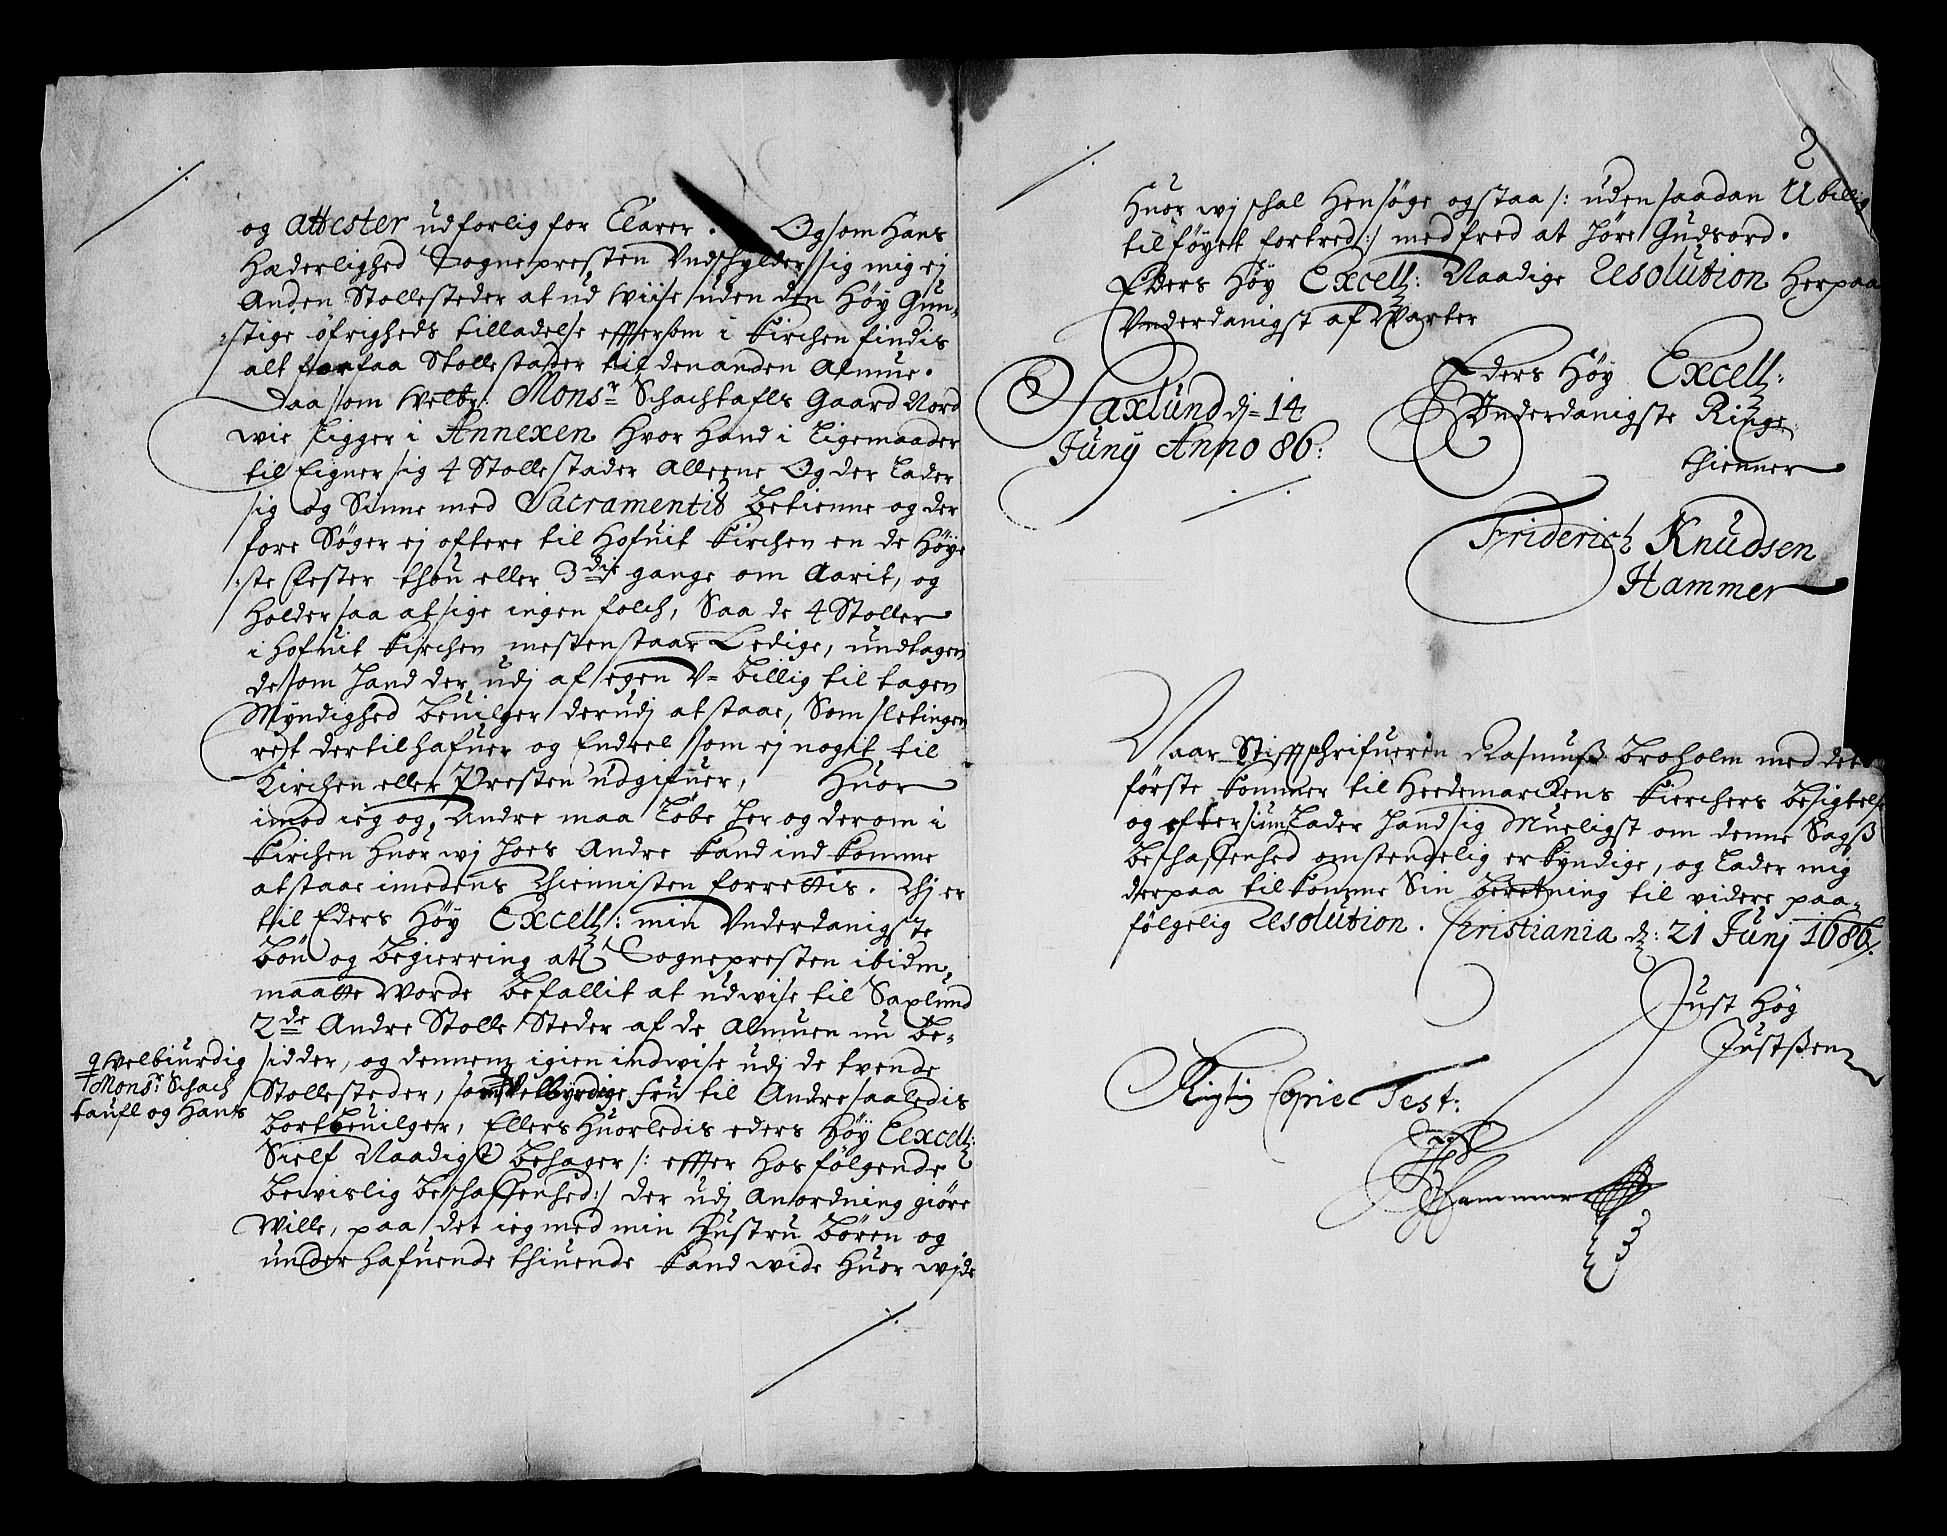 og attester udforlig for Clarer. Og som Hans
Hæderlighed Sognepresten Undschylder sig mig ej
Anden Stollesteder at ud wiise uden den Høy Gun,,
:stige øfrigheds tilladelse efftersom i Kirchen findis
alt for faa Stollestader til den anden Almue.
Daa som Welb: Mons:r Schachtafls Gaard Nord
wie Ligger i Annexen Hvor Hand i Ligemaader
til Eigner sig 4 Stollestader Alleene Og der Lader
sig og Sinne med Sacramentis Betienne og der
fore Søger ej oftere til Hofuit Kirchen en de Høye
:ste Fester thou eller 3die gange om Aarit, og
Holder saa at sige ingen folch, Saa de 4 Stoller
i Hofuit Kirchen mesten staar Ledige, undtagen
de som Hand der udj af egen U= billig til tagen
Myndighed Beuilger derudj at staae, Som slet ingen
ret der til hafuer og Endeel som ej nogit til
Kirchen eller Presten udgifuer, Huor
imod ieg og Andre maa Løbe Her og der om i
Kirchen Huor wj Hoes Andre Kand ind Komme
at staae imedens Thiennisten forrettis. Thj er
til Eders Høy Excell: min Underdanigste
Bøn og Begierring at Sognepresten ibidm,
maatte worde Befallit at udwise til Saxlund
2de Andre Stolle Steder af de Almuen nu Be-
sidder, og dennem igien indwise udj de tvende
Stollesteder, som Velbyrdige Fru til Andre saaledis
bort Beuilger, Ellers Huorledis eders Høy Eexcell:
Sielf Naadigst Behager /: effter Hosfølgende
Bewislig Beschaffenhed:/ der udj Anordning giøre
Wille, paa det ieg med min Hustru Børen og
under hafuende thiuende Kand wide Huor wj de
Welbiurdig
Mons:r Schach
taufl og Hans
2
Huor wj schal Hensøge og staa /: uden saadan Ubillig
tilføyet fortred :/ med fred at Høre Gudsord.
Eders Høy Excell: Naadige Resolution Herpaa
Underdanigst af Warter
Eders Høy Excell:
Saxlund dj= 14 Underdanigste Ringe
Junij Anno 86: thienner
Friderich Knudsen
Hammer
Naar Stifftschrifueren Rasmuss Broholm med det
første Kommer til Heedemarckens Kierchers besigtelse
og eftersiun Lader Hand sig Mueligst om denne Sagss
Beschaffenhed omstendelig erkyndige, og Lader mig
derpaa tilkomme Sin Beretning til videre paa-
følgelig Resolution. Christiania d: 21 Junj 1686.
Just Høg
Justssen
Rigtig Copie Test:
Hammer